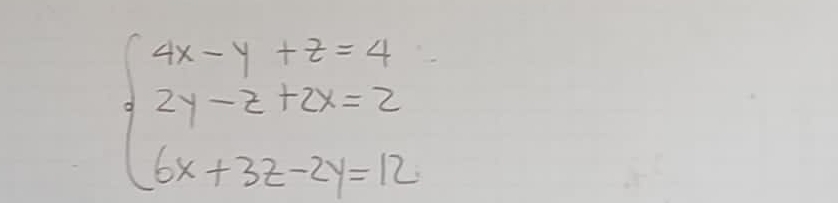 4x - y + z = 4
2y - z + 2x = 2
6x + 3z - 2y = 12